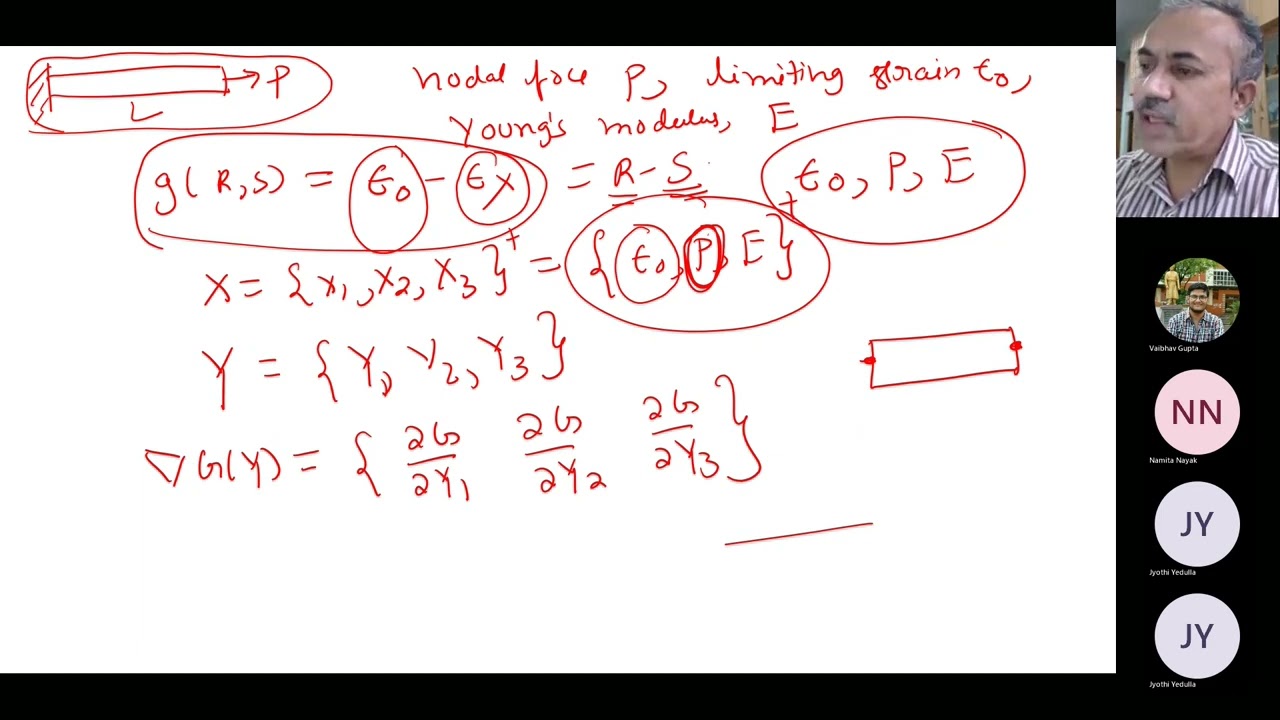 P
L
nodal foce P, limiting strain ϵ0,
Young's modulus, E
g(R,S) = ϵ0 - ϵx = R-S
ϵ0, P, E
X = {X1, X2, X3}ᵀ = {ϵ0, P, E}ᵀ
Y = {Y1, Y2, Y3}
∇G(Y) = { ∂G/∂Y1 ∂G/∂Y2 ∂G/∂Y3 }
Vaibhav Gupta
NN
Namita Nayak
JY
Jyothi Yedulla
JY
Jyothi Yedulla